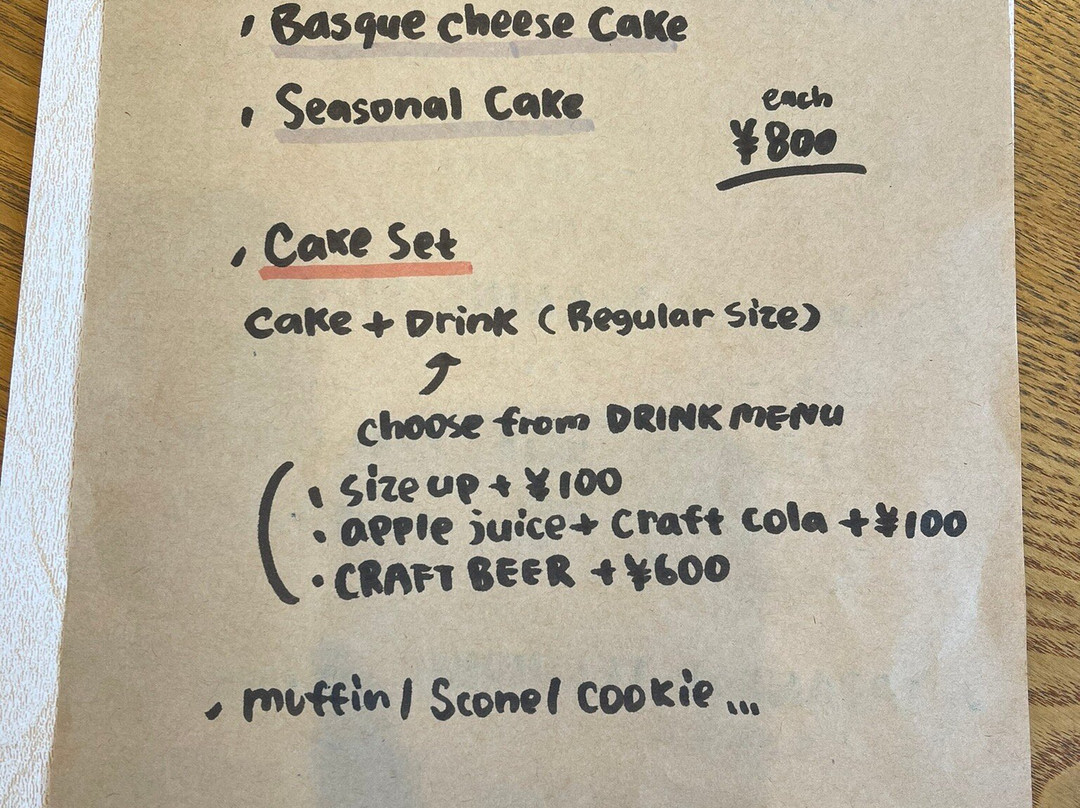 Basque cheese Cake
Seasonal Cake
each
¥800
Cake Set
Cake + Drink (Regular Size)
↑
choose from DRINK MENU
( · size up + ¥100
· apple juice + Craft cola + ¥100
· CRAFT BEER + ¥600
muffin / Scone / cookie ...